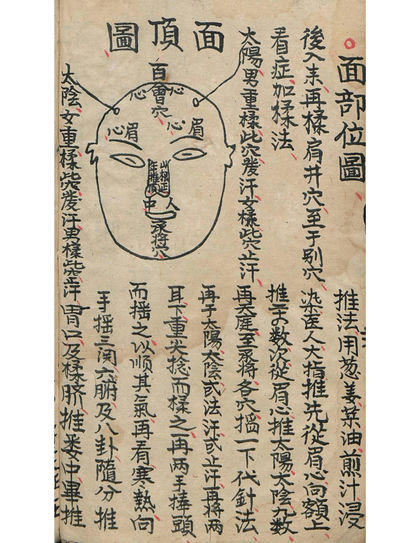 面部位圖
推法用葱姜某油煎汁浸
染医人大指推先從眉心向額上
推
数次從眉心推太陽太陰九数
再天庭至承漿各穴搯一下代針法
再于太陽太陰或法汗或止汗再將两
耳下重尖捻而揉之再两手捧頭
而揺之以順其氣再看寒熱向
手揺三関六腑及八卦隨分推
胃口及揉臍推
中畢推
後入
再揉肩井穴至于別穴
看症加揉法
太陽男重揉此穴發汗女揉此穴止汗
面頂圖
百會穴
心
心
眉
眉心
山根
人中
承漿穴
太陰女重揉此發汗男揉此穴止汗